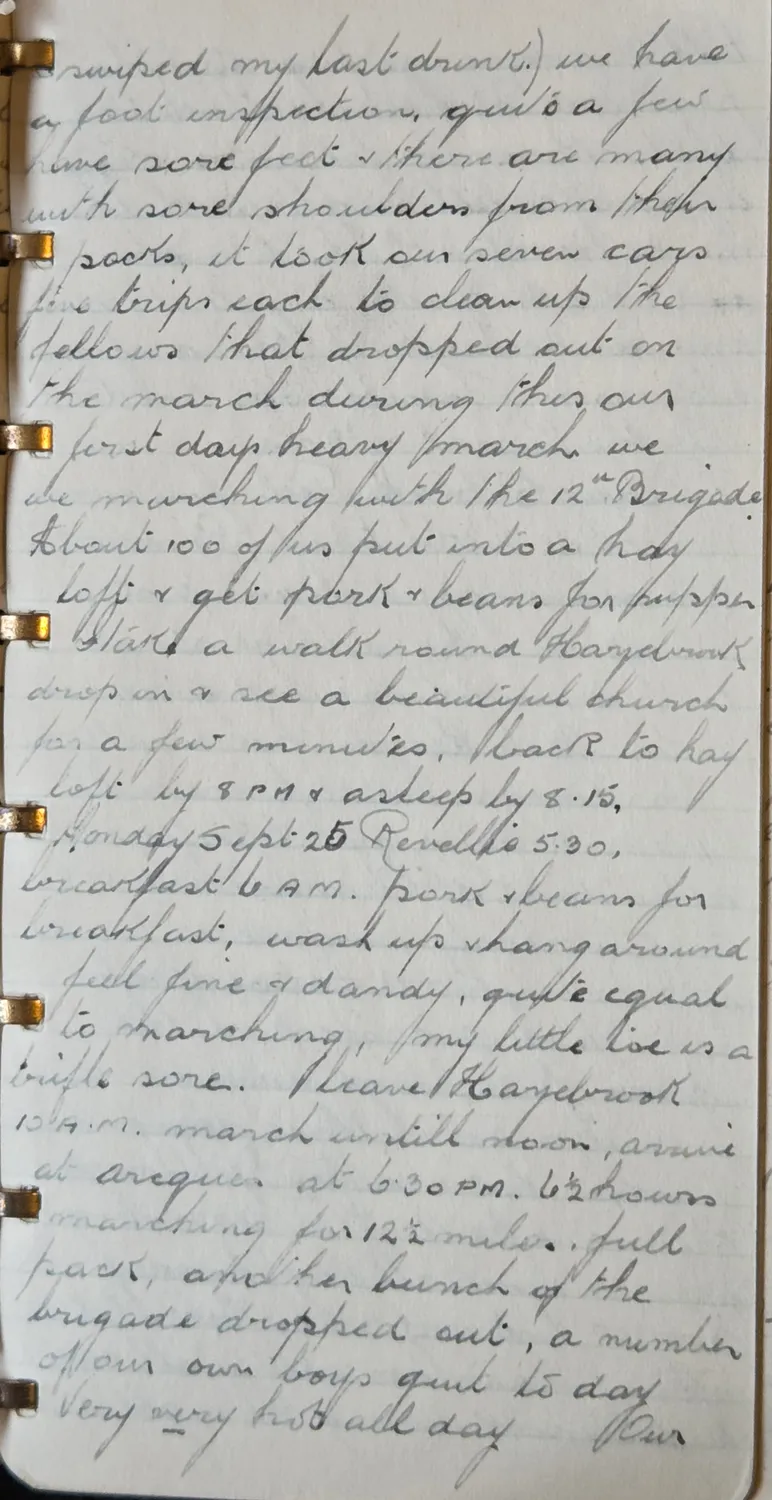 swiped my last drink.) we have
a foot inspection, quite a few
have sore feet & there are many
with sore shoulders from their
packs, it took our seven cars
five trips each to clean up the
fellows that dropped out on
the march during this our
first days heavy march. we
we marching with the 12th Brigade.
About 100 of us put into a hay
loft & get pork & beans for supper
& take a walk round Hazebrook
drop in & see a beautiful church
for a few minutes, back to hay
loft by 8 PM & asleep by 8.15,
Monday Sept 25 Revellie 5.30,
breakfast 6 A.M. pork & beans for
breakfast, wash up & hang around
feel fine & dandy, quite equal
to marching, my little toe is a
trifle sore. leave Hazebrook
10 A.M. march untill noon, arrive
at arcques at 6.30 PM. 6½ hours
marching for 12½ miles. full
pack, another bunch of the
brigade dropped out, a number
of our own boys quit to day
Very very hot all day Our